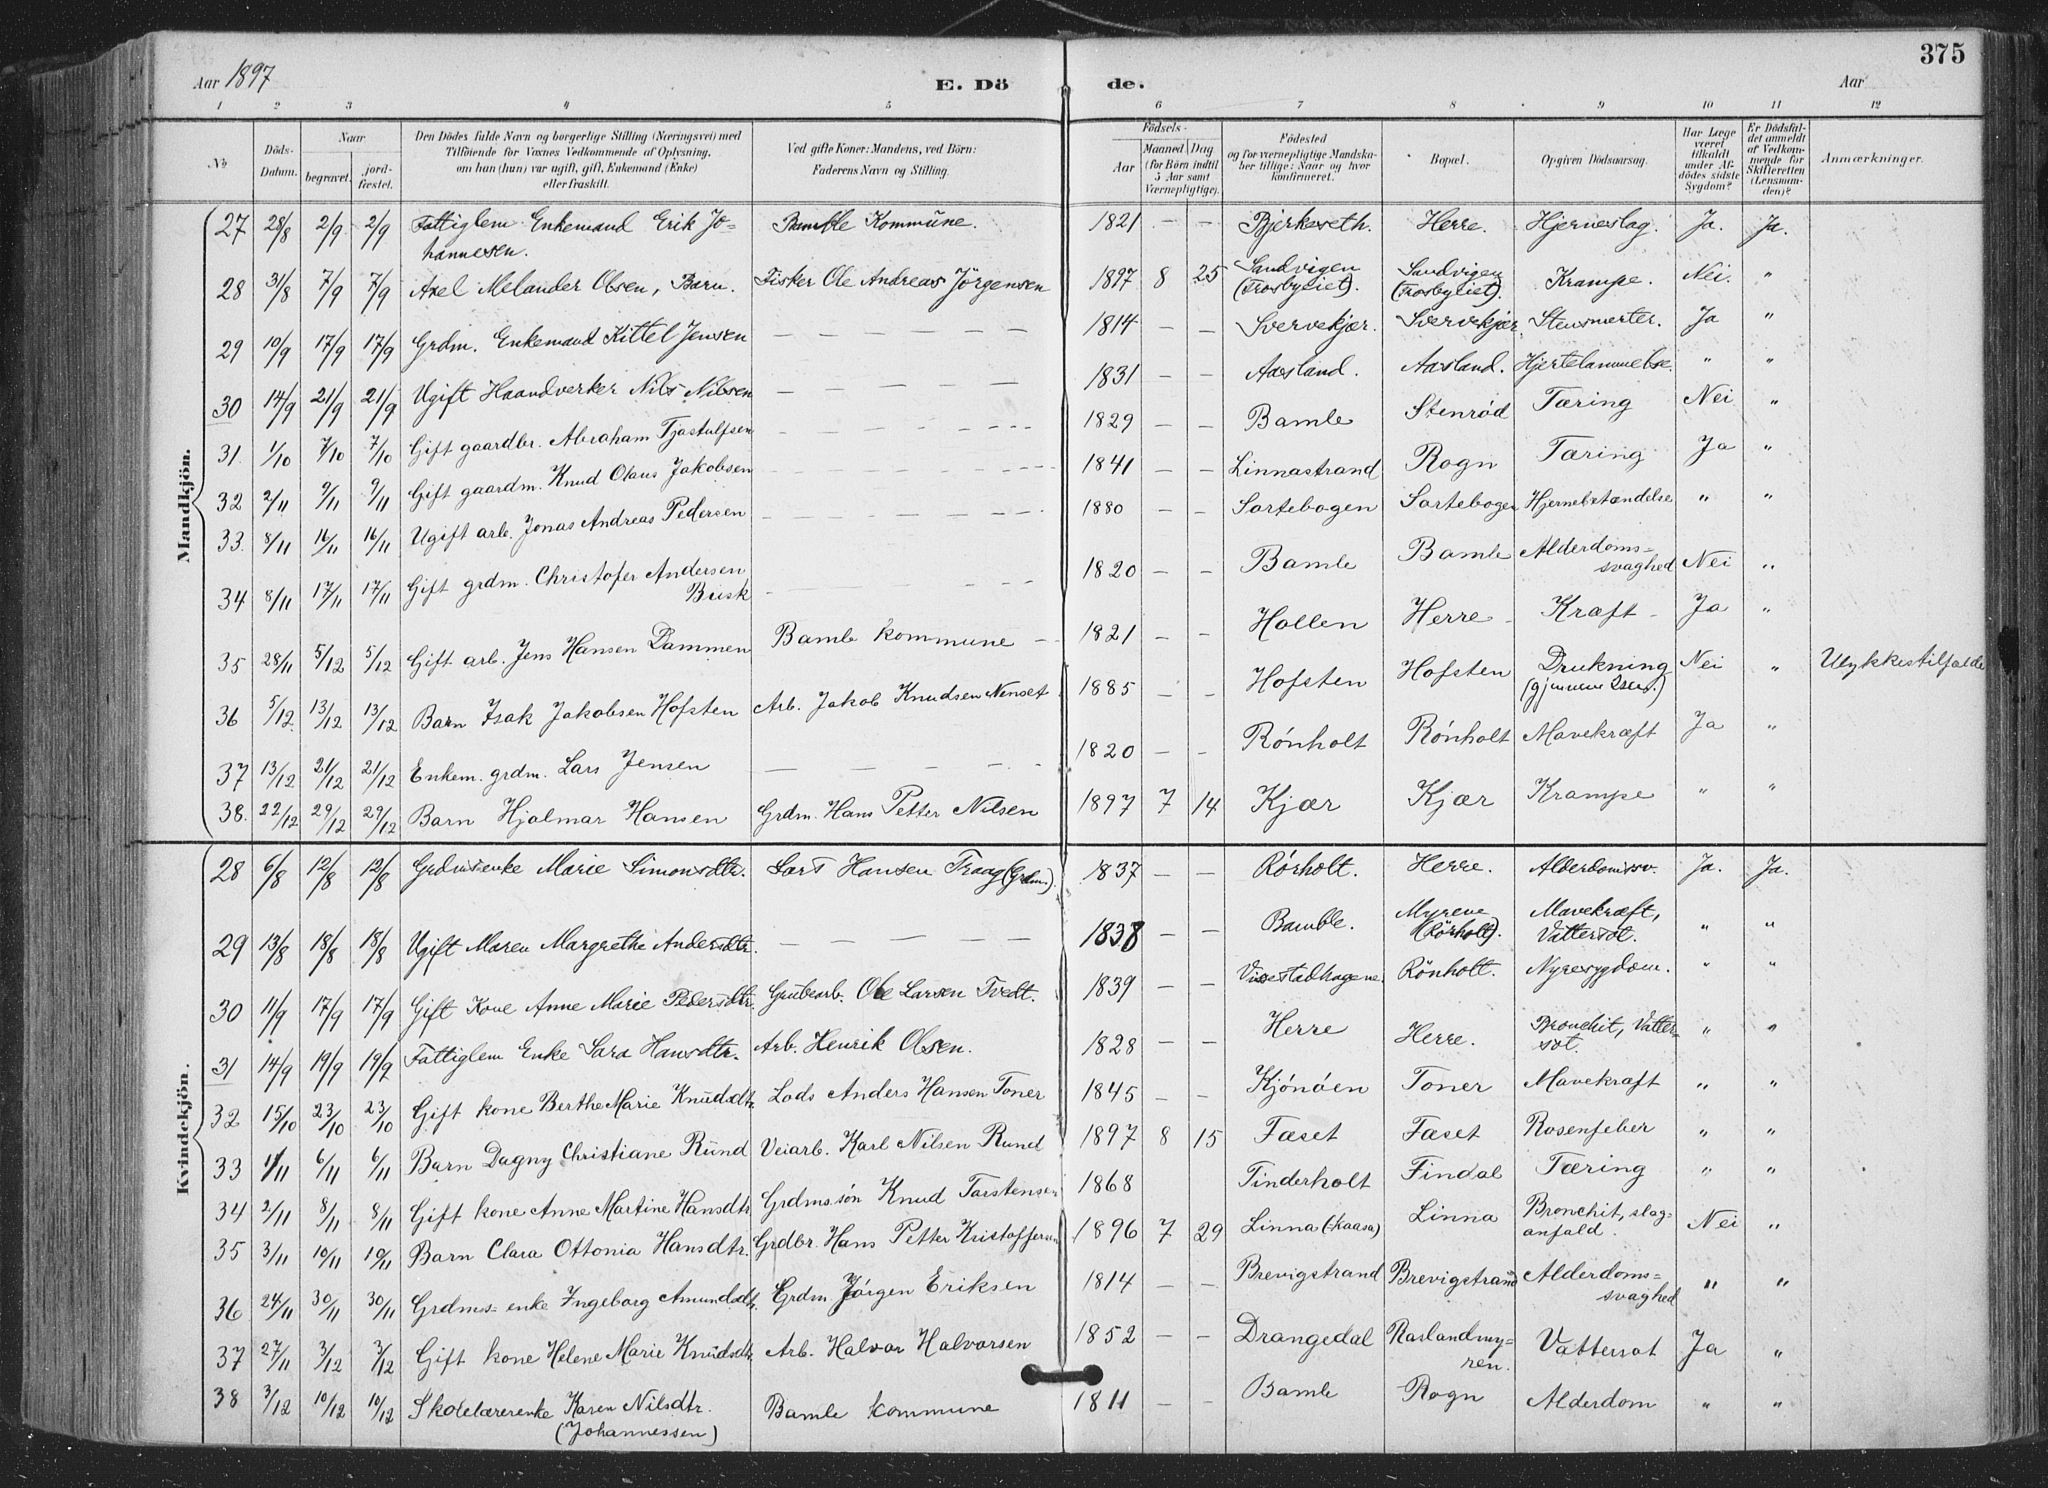 375
Aar 1897
E. Döde.
Aar
1 2 3 4 5 6 7 8 9 10 11 12
No
Döds-Datum.
Naar
begravet.
jord-fæstet.
Den Dödes fulde Navn og borgerlige Stilling (Næringsvei) med
Tilföiende for Voxnes Vedkommende af Oplysning,
om han (hun) var ugift, gift, Enkemand (Enke)
eller fraskilt.
Ved gifte Koner: Mandens, ved Börn:
Faderens Navn og Stilling.
Födsels-
Aar
Maaned Dag
(for Börn indtil
5 Aar samt
Værnepligtige).
Födested
og for værnepligtige Mandska-
ber tillige: Naar og hvor
konfirmeret.
Bopæl.
Opgiven Dödsaarsag.
Har Læge
været
tilkaldt
under Af-
dödes sidste
Sygdom?
Er Dödsfal-
det anmeldt
af Vedkom-
mende for
Skifteretten
(Lensman-
den)?
Anmærkninger.
Mandkjön.
27 28/8 2/9 2/9 Fattiglem Enkemand Erik Jo- Bamble Kommune. 1821 — — Bjerkeseth. Herre. Hjerneslag. Ja. Ja.
hannesen.
28 31/8 7/9 7/9 Axel Melander Olsen, Barn. Fisker Ole Andreas Jörgensen 1897 8 25 Sandvigen (Trosbyeiet). Sandvigen (Trosbyeiet). Krampe. Nei. "
29 10/9 17/9 17/9 Grdm. Enkemand Kittel Jensen — — — — 1814 — — Svervekjær. Svervekjær. Stensmerter. Ja "
30 14/9 21/9 21/9 Ugift Haandverker Nils Nilsen — — — — 1831 — — Aasland. Aasland. Hjertelammelse. " "
31. 1/10 7/10 7/10 Gift gaardbr. Abraham Tjostulfsen — — — — 1829 — — Bamle Stenröd Tæring Nei "
32 2/11 9/11 9/11 Gift gaardm. Knud Olaus Jakobsen — — — — 1841 — — Linnastrand Rogn Tæring Ja "
33. 8/11 16/11 16/11 Ugift arb. Jonas Andreas Pedersen — — — — 1880 — — Sortebogen Sortebogen Hjernebetændelse " "
34 8/11 17/11 17/11 Gift grdm. Christofer Andersen — — — — 1820 — — Bamle Bamle Alderdoms= svaghed Nei "
Busk
35 28/11 5/12 5/12 Gift arb. Jens Hansen Dammen Bamle kommune — 1821 — — Hollen Herre Kræft Ja "
36 5/12 13/12 13/12 Barn Isak Jakobsen Hofsten Arb. Jakob Knudsen Nenset 1885 — — Hofsten Hofsten Drukning (gjennem Isen.) Nei " Ulykkestilfælde
37 13/12 21/12 21/12 Enkem. grdm. Lars Jensen — — — — 1820 — — Rónholt Rónholt Mavekræft Ja "
38. 22/12 29/12 29/12 Barn Hjalmar Hansen Grdm. Hans Petter Nilsen 1897 7 14 Kjær Kjær Krampe " "
Kvindekjön.
28 6/8 12/8 12/8 Grdmsenke Marie Simonsdtr. Lars Hansen Traag (Grdm.) 1837 — — Rórholt. Herre. Alderdomssv. Ja. Ja.
29 13/8 18/8 18/8 Ugift Maren Margrethe Andersdtr. — — — — 1838 — — Bamble. Myrene (Rörholt). Mavekræft, Vattersot. " "
30 11/9 17/9 17/9 Gift Kone Anne Marie Pedersdtr. Grubearb. Ole Larsen Tvedt. 1839 — — Rönholt. Nyresygdom. " "
31 14/9 19/9 19/9 Fattiglem Enke Sara Hansdtr. Arb. Henrik Olsen. 1828 — — Herre Herre. Bronchit, Vatter- sot. " "
32 15/10 23/10 23/10 Gift kone Berthe Marie Knudsdtr. Lods Anders Hansen Toner 1845 — — Kjónóen Toner Mavekraft " "
33 1/11 6/11 6/11 Barn Dagny Christiane Rund Veiarb. Karl Nilsen Rund 1897 8 15 Faset Faset Rosenfeber " "
34 2/11 8/11 8/11 Gift kone Anne Martine Hansdtr Grdms.són Knud Tarstensen 1868 Tinderholt Findal Tæring " "
35 3/11 10/11 10/11 Barn Clara Ottonia Hansdtr. Grdbr. Hans Petter Kristoffersen 1896 7 29 Linna (kaasa) Linna Bronchit, slag- anfald. Nei "
36 24/11 30/11 30/11 Grdms= enke Ingeborg Amundsdtr. Grdm Jórgen Eriksen 1814 — — Brevigstrand Brevigstrand Alderdoms= svaghed " "
37 27/11 3/12 3/12 Gift kone Helene Marie Knudsdtr. Arb. Halvor Halvorsen 1852 — — Drangedal Raslandmy- ren. Vattersot Ja "
38 3/12 10/12 10/12 Skolelærerenke Karen Nilsdtr. Bamle kommune 1811 — — Bamle Rogn Alderdom " "
(Johannessen)